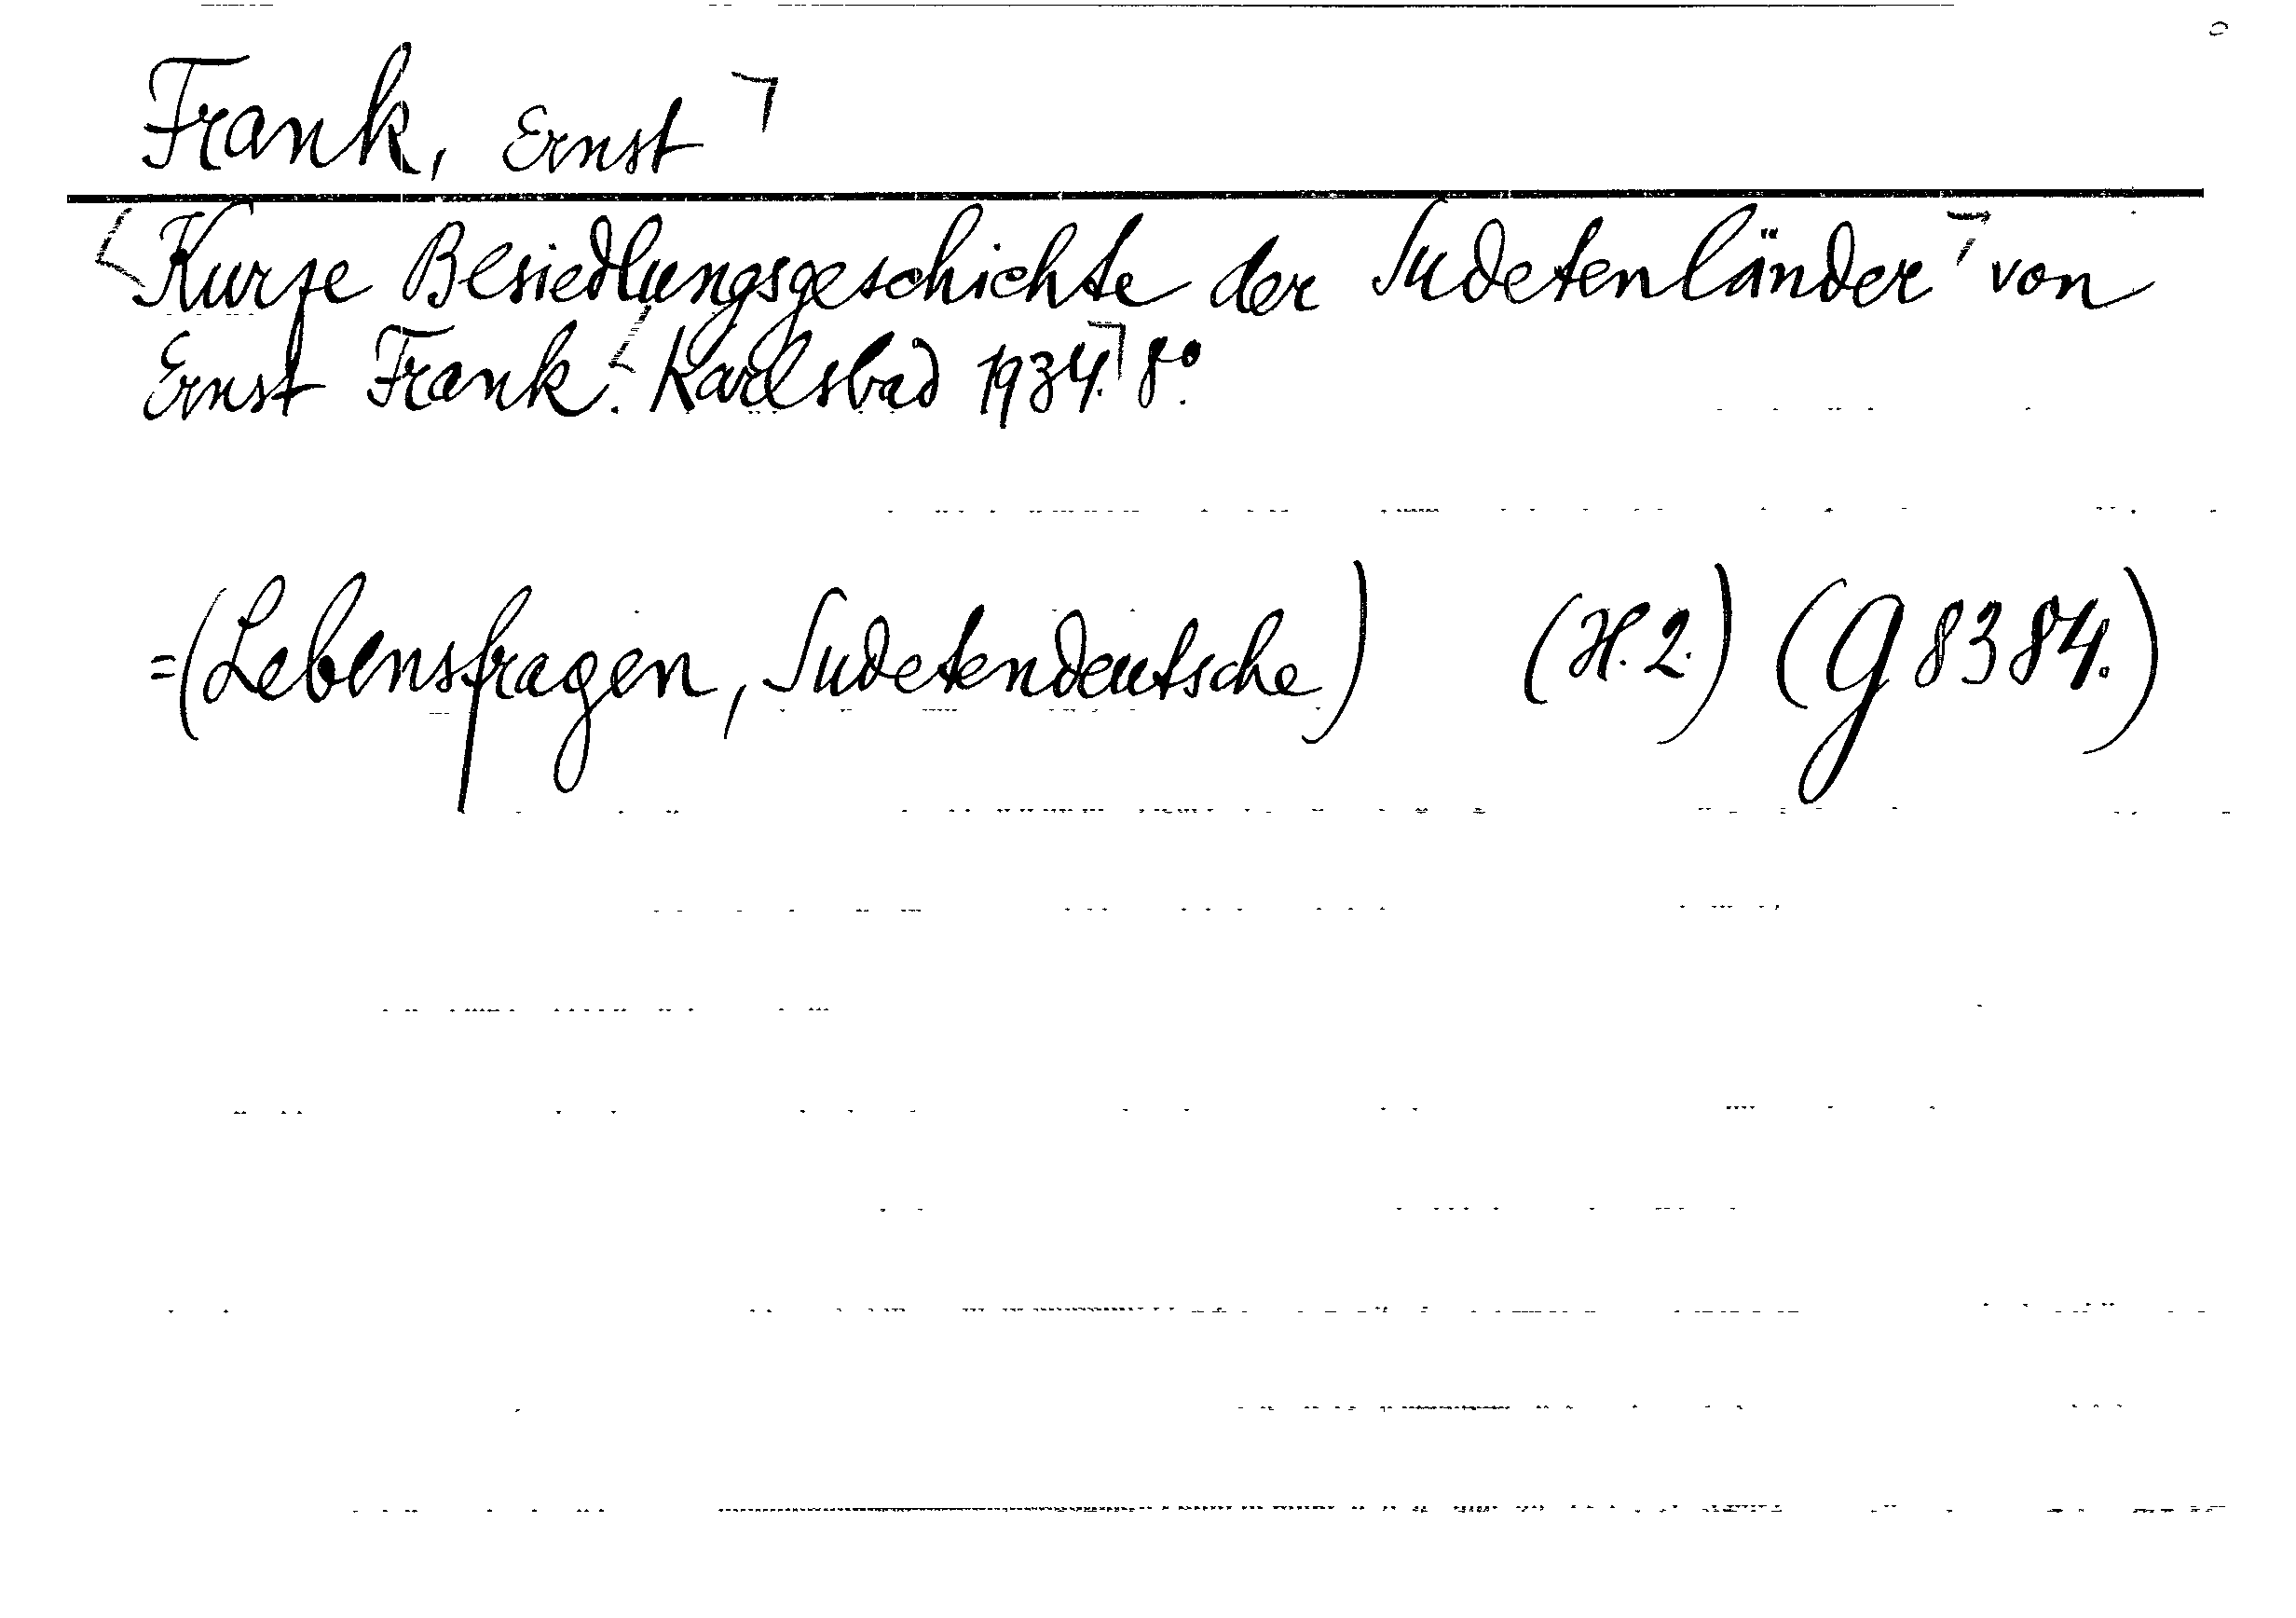 Frank, Ernst
Kurze Besiedlungsgeschichte der Sudetenländer von
Ernst Frank. Karlsbad 1934. 8°.
=(Lebensfragen, Sudetendeutsche) (H. 2.) (G 8384.)